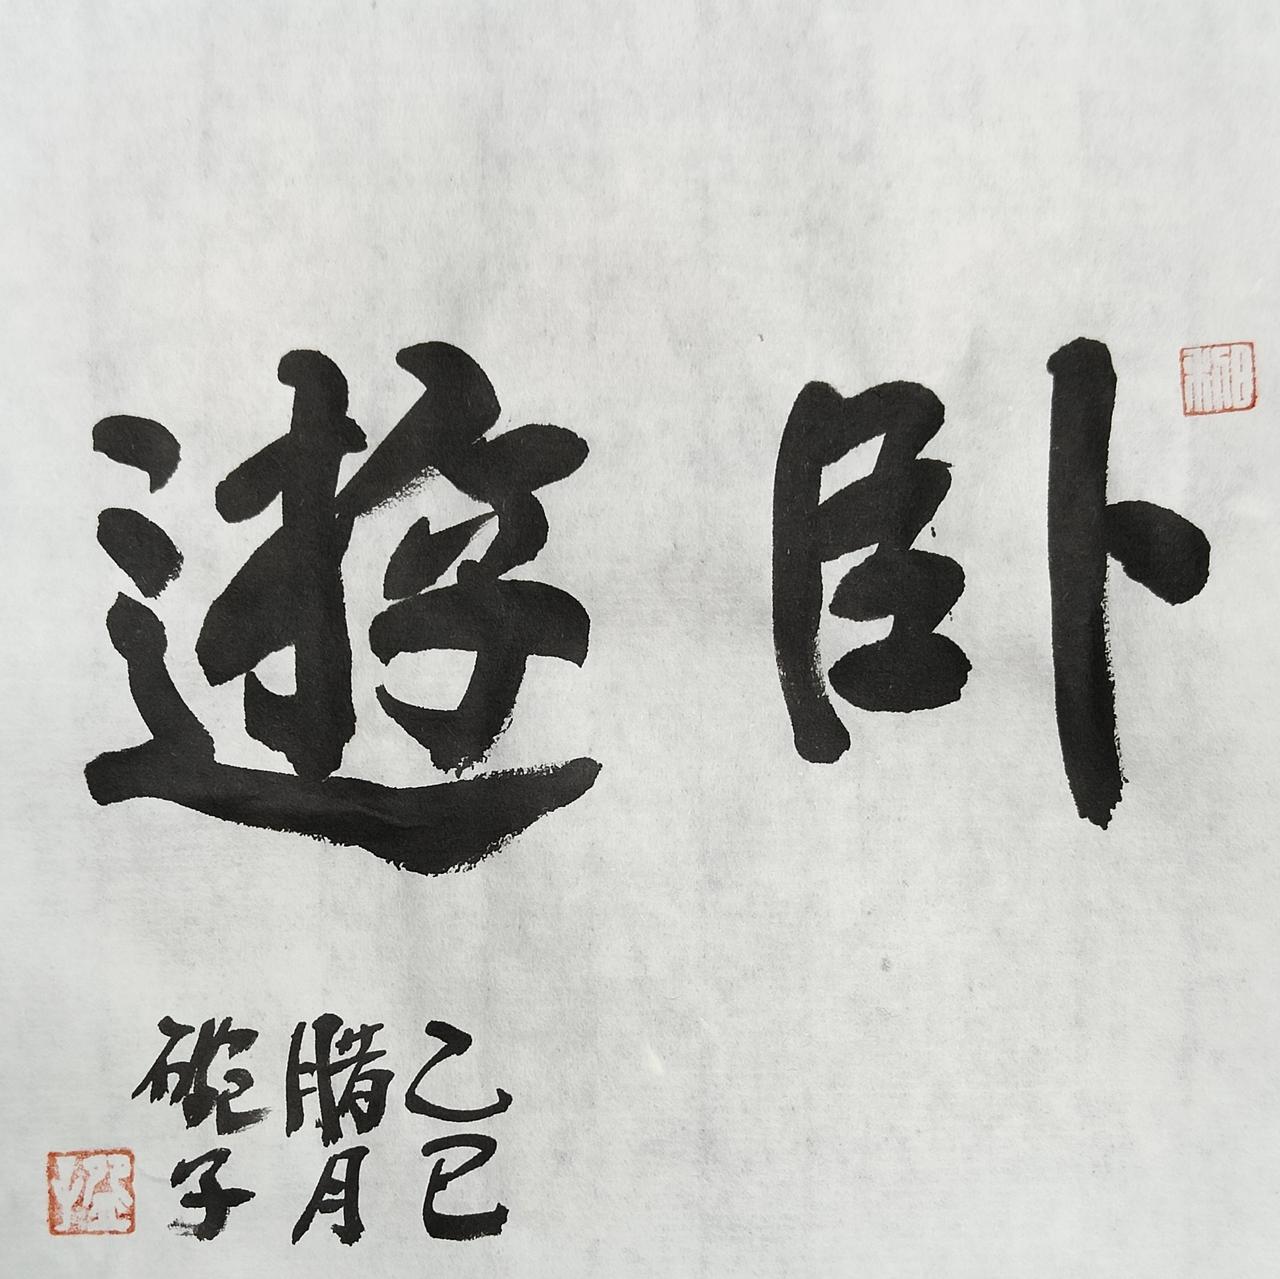 卧遊
乙巳
腊月
碗子